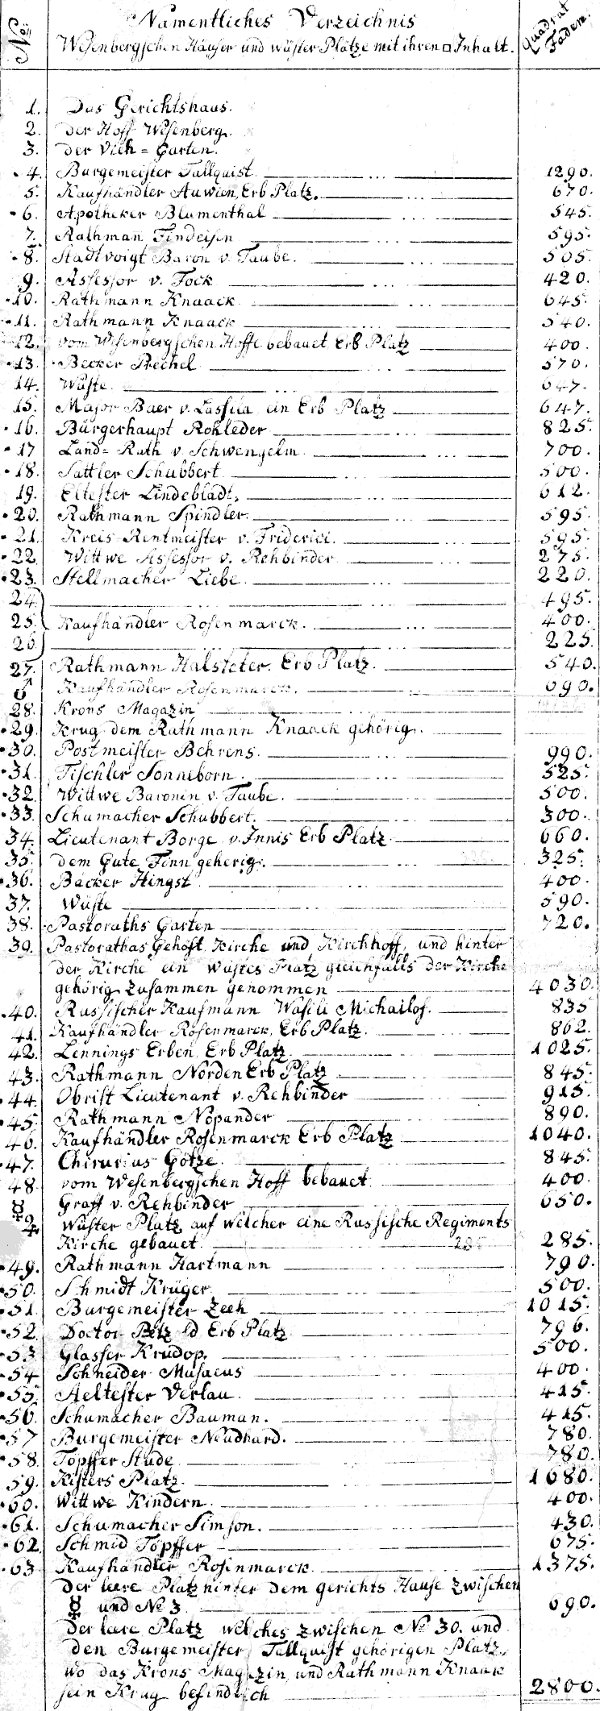 No: Namentliches Verzeichnis Quadrat Faden.
Wesenbergschen Häuser und wüster Plätze mit ihren □ Inhalt.
1. Das Gerichtshaus.
2. der Hoff Wesenberg.
3. der Vieh=Garten.
4. Burgemeister Tallquist 1290.
5. Kaufhändler Auwien, Erb Platz. 670.
6. Apotheker Blumenthal 545.
7. Rathman Findeisen 595.
8. Stadtvoigt Baron v. Taube. 505.
9. Assessor v. Fock 420.
10. Rathmann Knaack 645.
11. Rathmann Knaack 540.
12. vom Wesenbergschen Hoffe bebauet Erb Platz 400.
13. Becker Prechel 570.
14. Wüste 647.
15. Major Baer v. Lassila ein Erb Platz 647.
16. Bürgerhaupt Rohleder 825.
17 Land=Rath v. Schwengelm 700.
18. Sattler Schubbert 500.
19. Eltester Lindebladt. 612.
20. Rathmann Spindler 595.
21. Kreis Rentmeister v. Friderici. 595.
22. Wittwe Assessor v. Rehbinder 275.
23. Stellmacher Liebe 220.
24. 495.
25. Kaufhändler Rosenmarck. 400.
26 225.
27. Rathmann Halsteter. Erb Platz. 540.
Kaufhändler Rosenmarck. 690.
28. Krons Magazin
29. Krug dem Rathmann Knaack gehörig.
30. Postmeister Behrens. 990.
31. Tischler Sonneborn 525.
32. Wittwe Baronin v. Taube. 500.
33. Schumacher Schubbert. 300.
34. Lieutenant Borge v. Innis Erb Platz 660.
35. dem Gute Finn geherig. 325.
36. Bäcker Hingst 400.
37. Wüste 590.
38. Pastoraths Garten 720.
39. Pastorathas Gehöft Kirche und Kirchhoff, und hinter
der Kirche ein wüstes Platz gleichfalls der Kirche
gehörig zusammen genommen 4030.
40. Russischer Kaufmann Wasili Michailof. 835
41. Kaufhändler Rosenmarck, Erb Platz. 862.
42. Lennings Erben Erb Platz 1025.
43. Rathmann Norden Erb Platz 845.
44. Obrist Lieutenant v. Rehbinder 915.
45. Rathmann Nopander 890.
46. Kaufhändler Rosenmarck Erb Platz 1040.
47. Chirurius Götze. 845.
48. vom Wesenbergschen Hoff bebauet 400.
Graff v. Rehbinder 650.
Wüster Platz auf welcher eine Russische Regiments
Kirche gebauet 285.
49. Rathmann Hartmann 790.
50. Schmidt Krüger 500.
51. Burgemeister Zeeh 1015.
52. Doctor Erb Platz 796.
53 Glasser Krudop. 500.
54 Schneider Musaeus 400.
55. Aeltester Verlau. 415.
56. Schumacher Bauman. 415.
57 Burgemeister Neudhard. 780.
58. Töpffer Stude 780.
59. Kisters Platz. 1680.
60. Wittwe Kindern. 400.
61. Schumacher Simson. 430.
62 Schmid Töpffer 675.
63. Kaufhändler Rosenmarck 1375.
Der leere Platz hinter dem gerichts Hause zwischen
und No 3 690.
Der lere Platz welches zwischen No 30. und
den Burgemeister Tallquist gehörigen Platz,
wo das Krons Magazin, und Rathmann Knaak
sein Krug befindlich 2800.